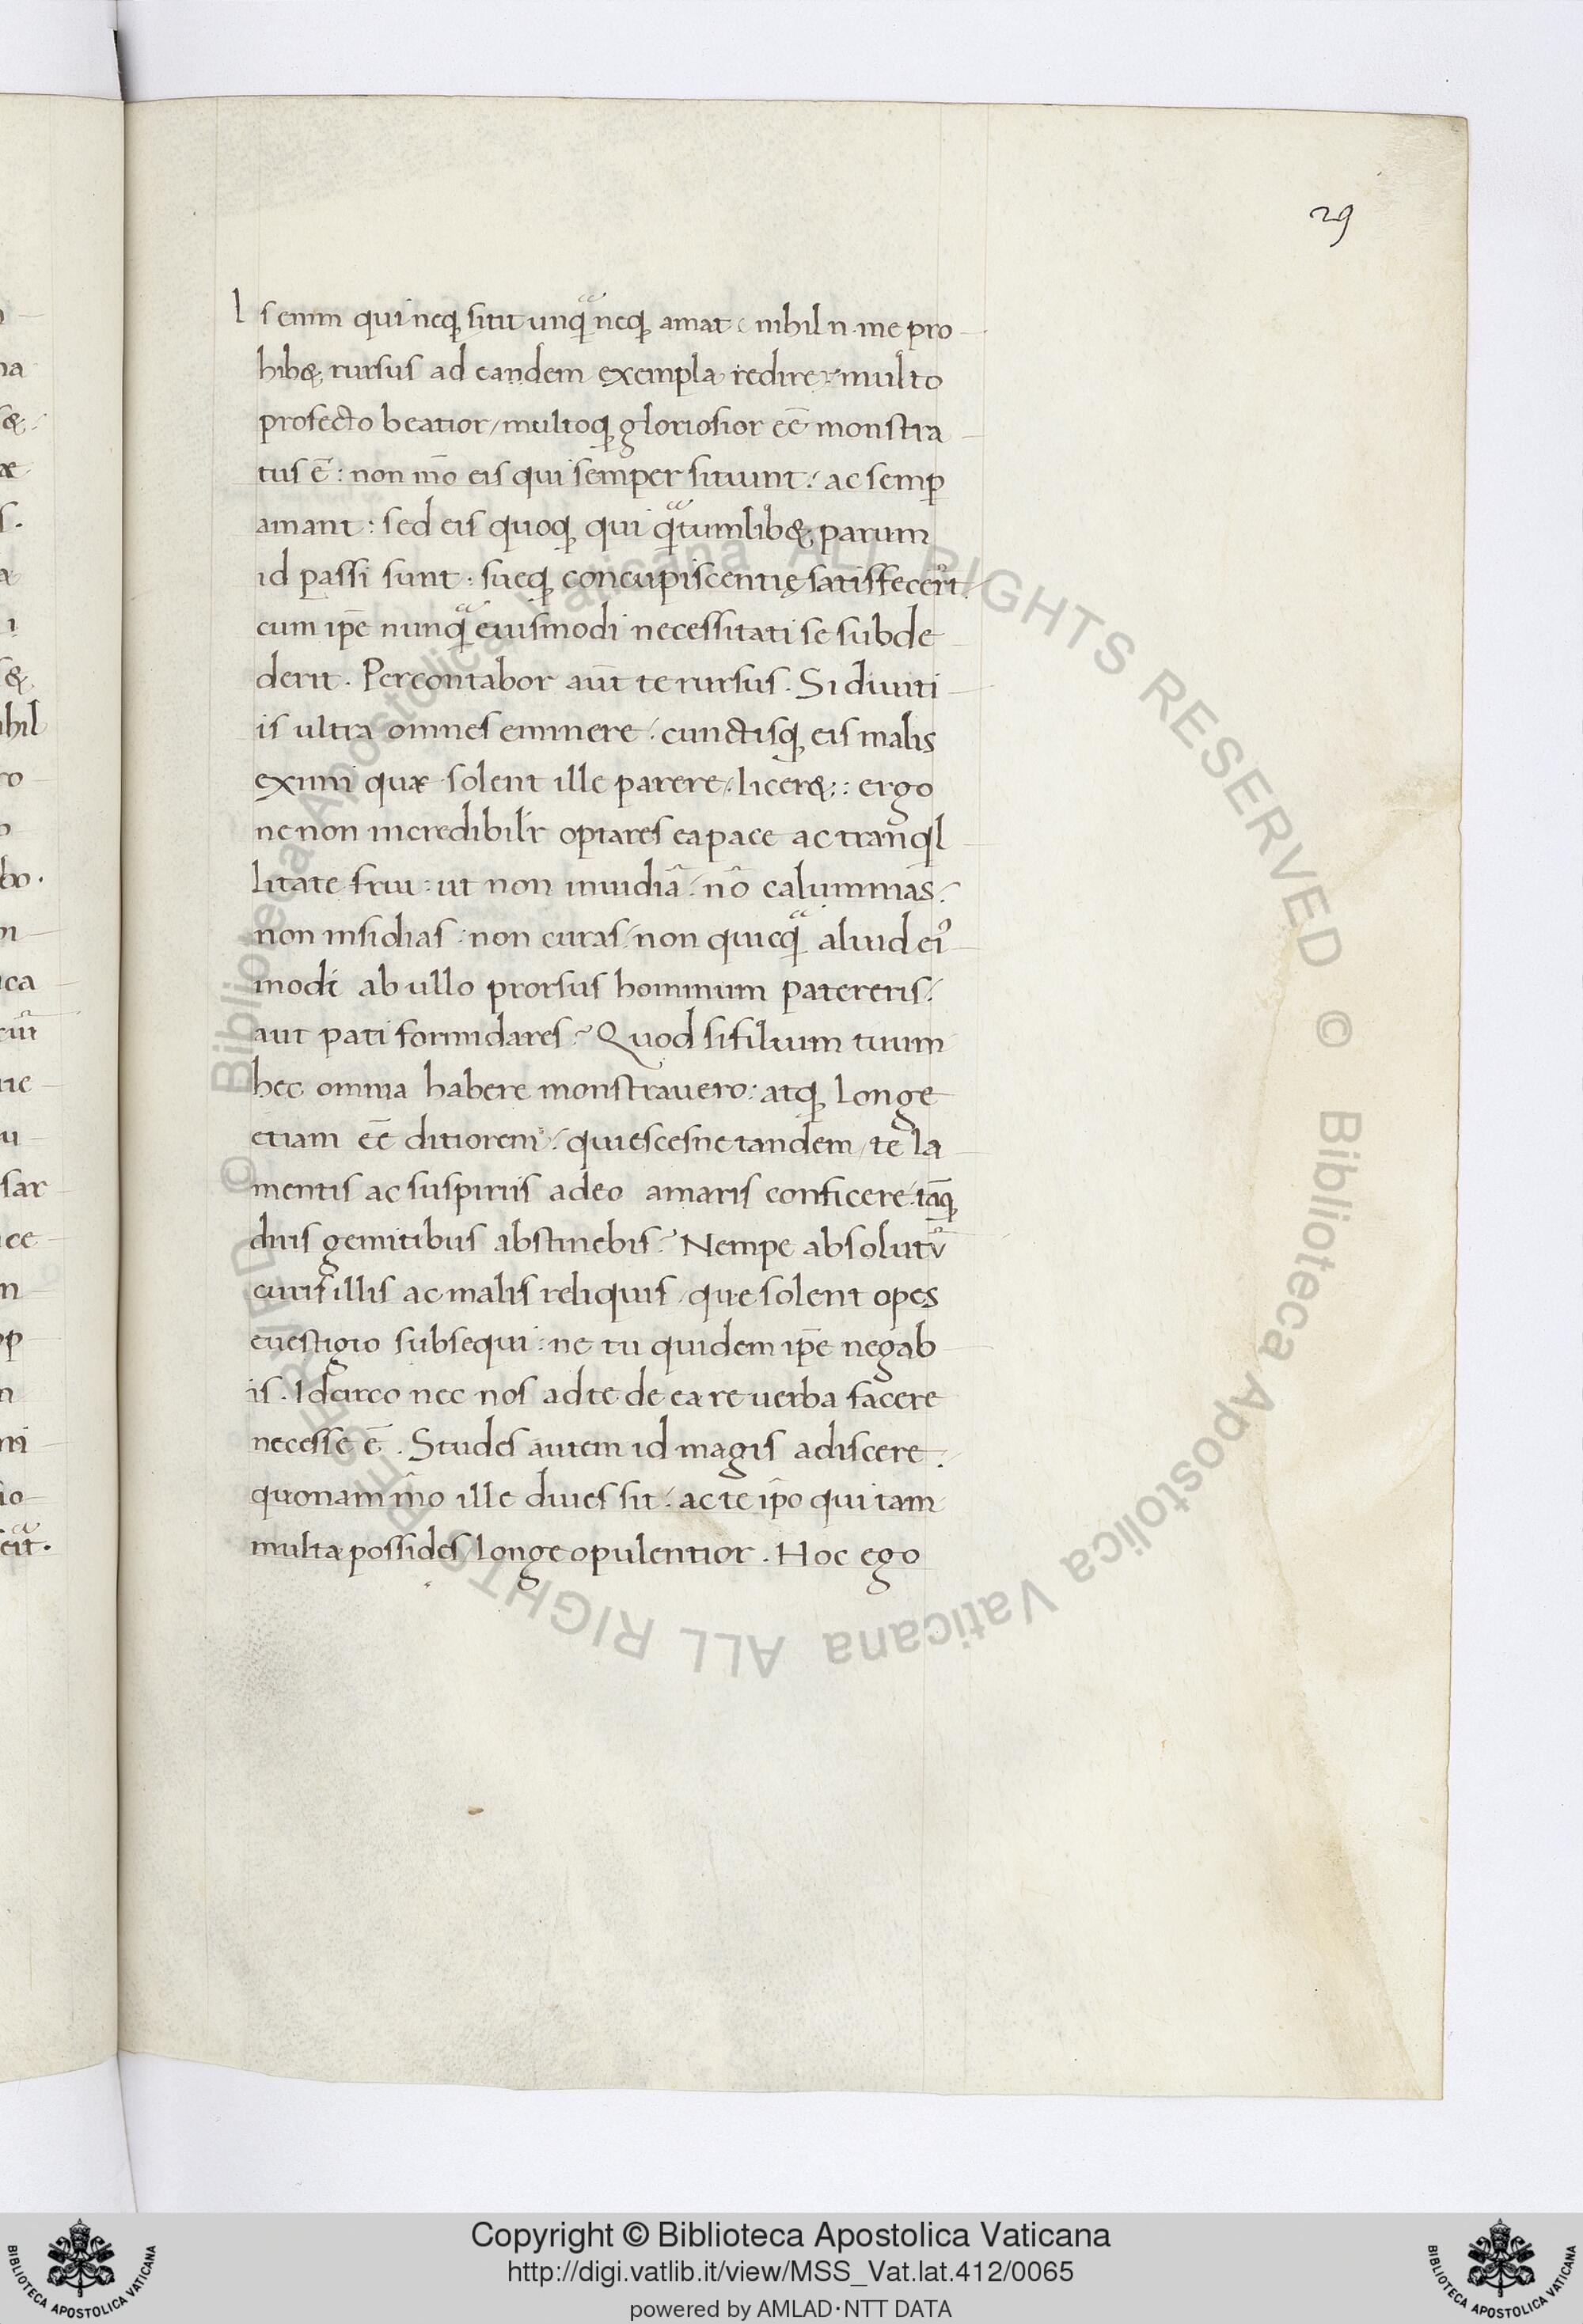 29
Is enim qui neq; sitit unqᷓ neq; amat: nihil n. me pro
hib&; rursus ad eandem exempla redire: multo
profecto beatior/ multoq; gloriosior eē monstra
tus ē: non mō eis qui semper sitiunt: ac semꝑ
amant: sed eis quoq; qui qᷓtumlib&; parum
id passi sunt: sueq; concupiscentię satisfecer̃t.
cum ip̄e nunqᷓ eiusmodi necessitati se subde
derit. Percontabor aūt te rursus. Si diuiti
is ultra omnes eminere: cunctisq; eis malis
eximi quæ solent ille parere: licer&: ergo
ne non incredibilr̃ optares ea pace ac tranq̇l
litate frui: ut non inuidiā: nō calumnias:
non insidias: non curas: non quicqᷓ aliud eiꝰ
modi ab ullo prorsus hominum patereris:
aut pati formidares? Quod si filium tuum
hec omnia habere monstrauero: atq; longe
etiam eē ditiorem: quiescesne tandem/ te la
mentis ac suspiriis adeo amaris conficere: tāq;
diris gemitibus abstinebis? Nempe absolutū
curis illis ac malis reliquis/ que solent opes
euestigio subsequi: ne tu quidem ip̄e negab
is. Idcirco nec nos ad te de ea re uerba facere
necesse ē. Studes autem id magis adiscere:
quonam mō ille diues sit: ac te ip̄o qui tam
multa possides/ longe opulentior. Hoc ego
© Biblioteca Apostolica Vaticana ALL RIGHTS RESERVED © Biblioteca Apostolica Vaticana ALL RIGHTS RESERVED
BIBLIOTECA APOSTOLICA VATICANA
Copyright © Biblioteca Apostolica Vaticana
http://digi.vatlib.it/view/MSS_Vat.lat.412/0065
powered by AMLAD·NTT DATA
BIBLIOTECA APOSTOLICA VATICANA